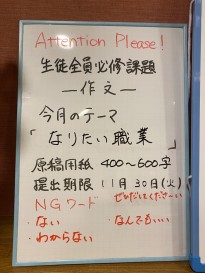 Attention Please!
生徒全員必修課題
―作文―
今月のテーマ
「なりたい職業」
原稿用紙 400～600字
提出期限 11月30日(火)
ぜひだしてくださーい
NGワード
・ない ・なんでもいい
・わからない